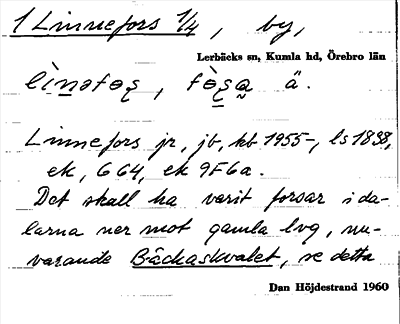 1 Linnefors 1/4, by,
Lerbäcks sn, Kumla hd, Örebro län
ä.
Linnefors jr, jb, kb 1955-, ls 1838,
ek, G64, ek 9F6a.
Det skall ha varit forsar i da-
larna ner mot gamla lvg, nu-
varande Bäckaskvalet, se detta
Dan Höjdestrand 1960